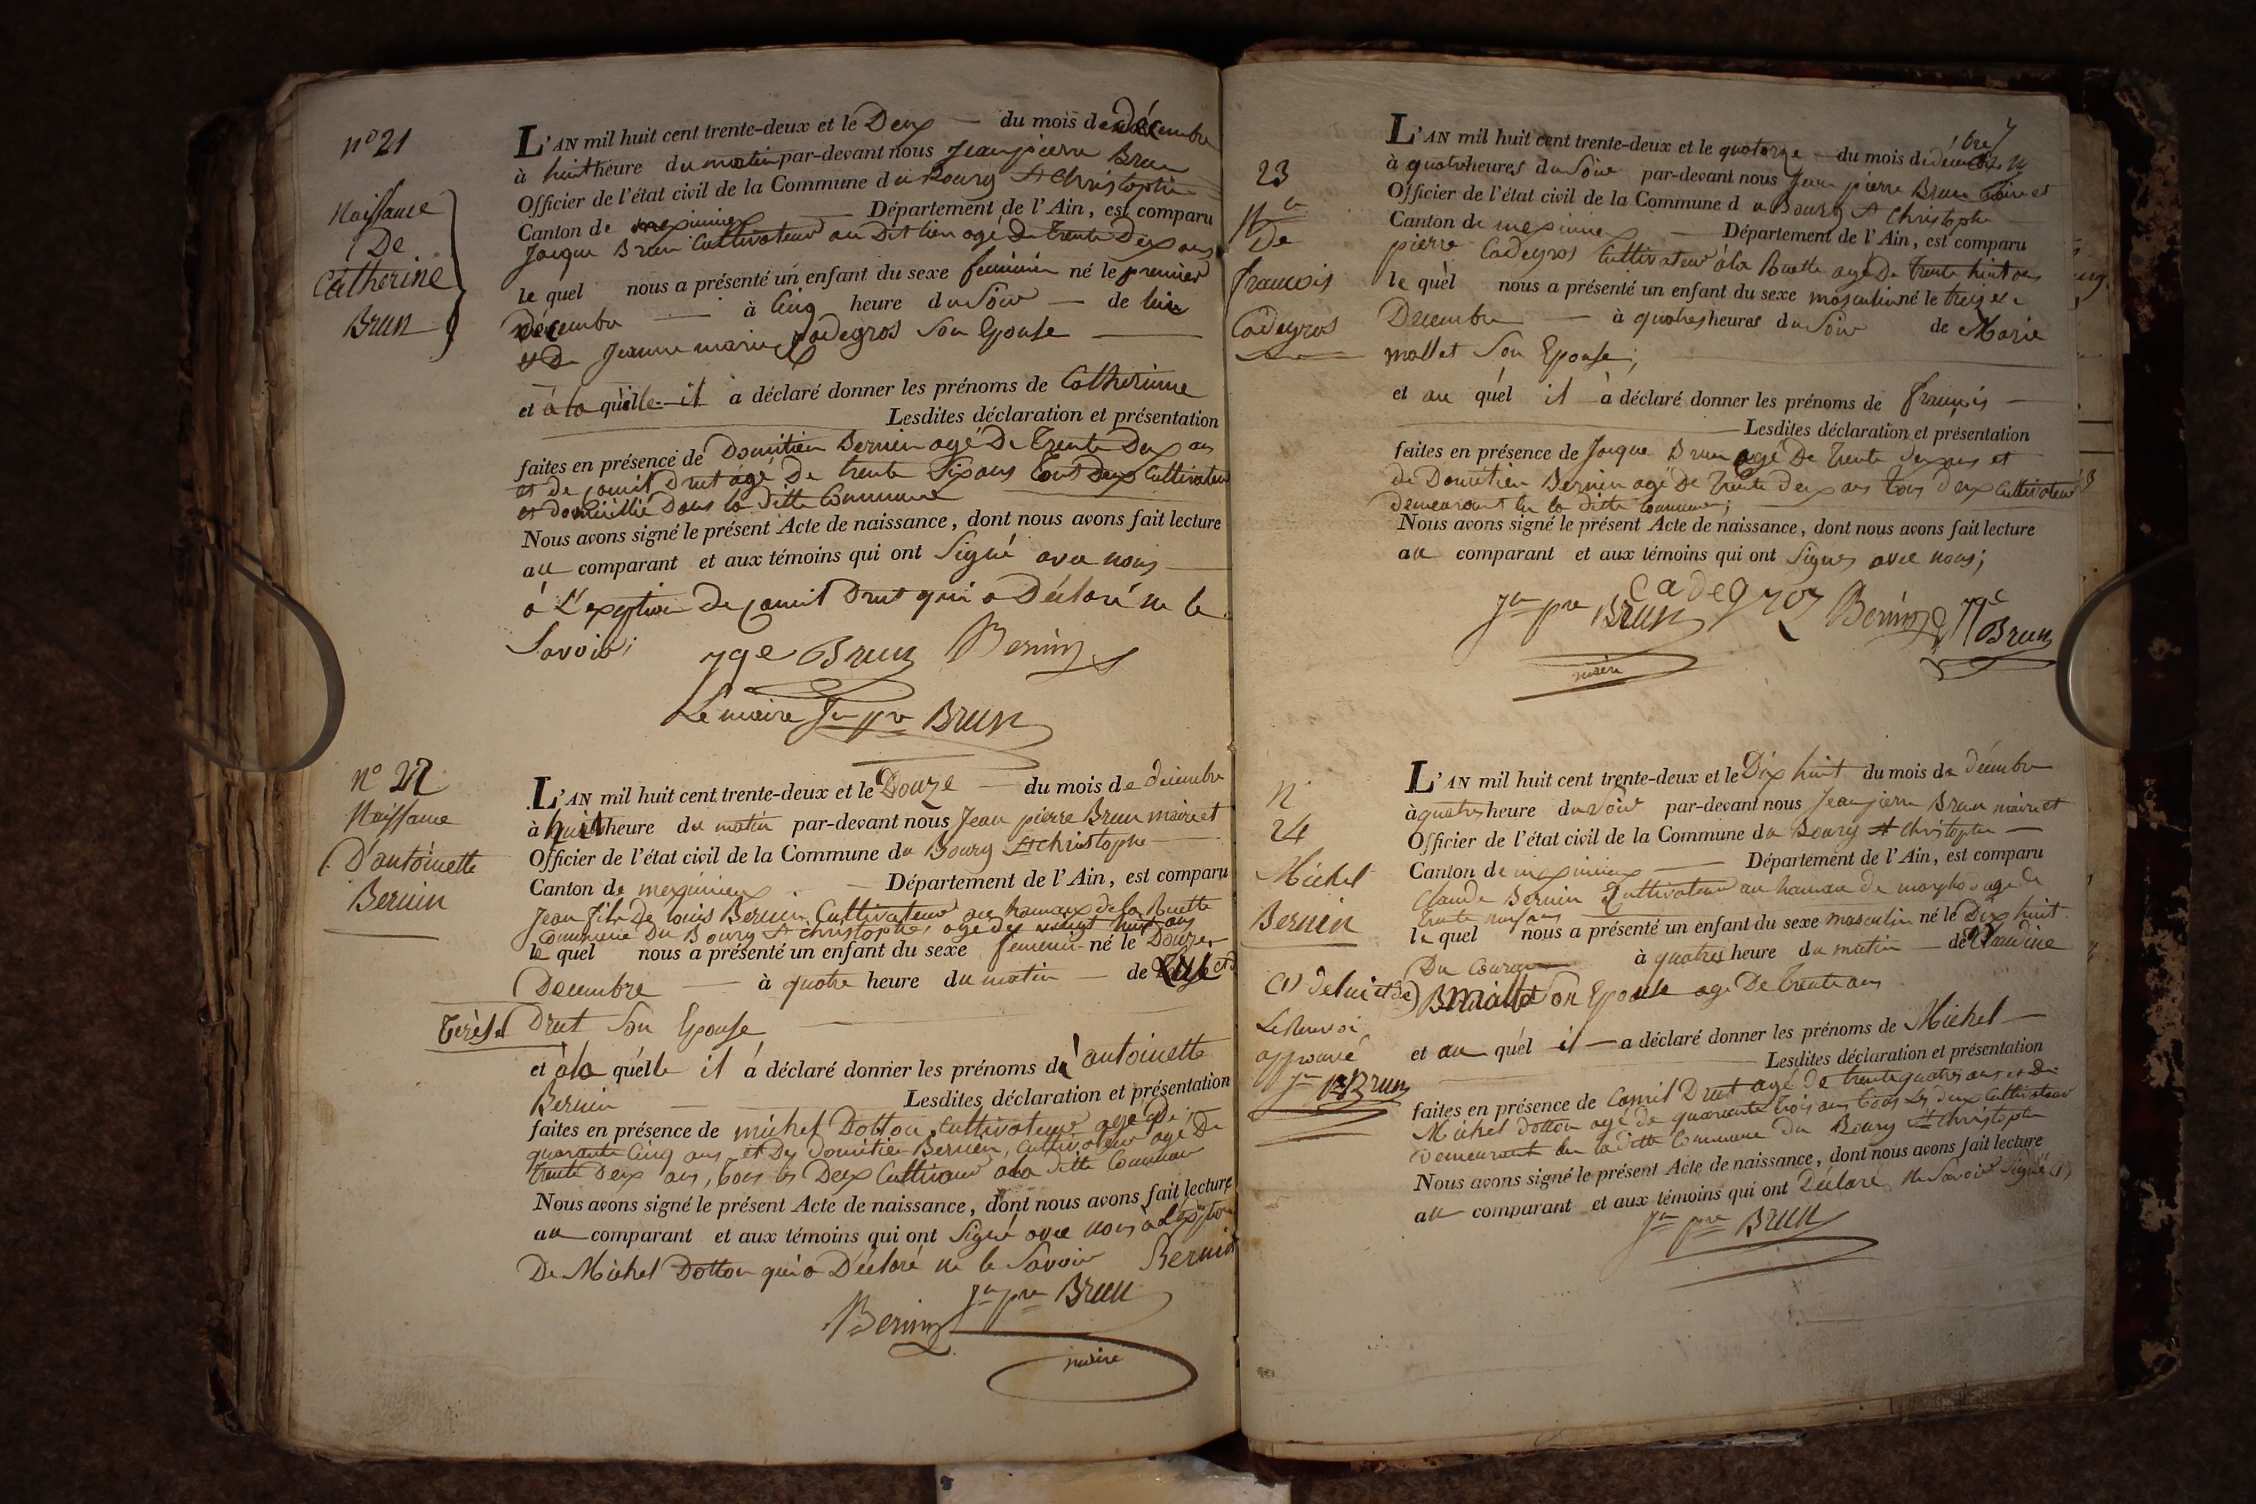 n° 21
Naissance
De
Catherine
Brun
L'AN mil huit cent trente-deux et le Deux du mois de décembre
à huit heure du matin par-devant nous Jean pierre Brun
Officier de l'état civil de la Commune du Bourg St Christophe
Canton de meximieux Département de l'Ain, est comparu
Jacque Brun Cultivateur au Dit lieu agé De trente Deux ans
le quel nous a présenté un enfant du sexe feminin né le premier
décembre à Cinq heure du Soir de lui
et De Jeanne marie Cadegros Son Epouse
et à la quelle il a déclaré donner les prénoms de Catherinne
Lesdites déclaration et présentation
faites en présence de Domitien Bernin agé De Trente Deux ans
et de Camil Drut agé De trente Six ans tous Deux Cultivateur
et domicillié Dans la ditte Commune
Nous avons signé le présent Acte de naissance, dont nous avons fait lecture
au comparant et aux témoins qui ont Signé avec nous
à L'exeption De Camil Drut qui a Déclaré ne le
Savoir;
Jqe Brun Bernin
Le maire Jn pre Brun
N° 22
Naissance
D'antoinette
Bernin
L'AN mil huit cent trente-deux et le Douze du mois de décembre
à huit heure du matin par-devant nous Jean pierre Brun maire et
Officier de l'état civil de la Commune du Bourg St christophe
Canton de meximieux Département de l'Ain, est comparu
Jean fils De louis Bernin Cultivateur au hameaux de la Ruette
Commune Du Bourg St christophe, agé de vingt huit ans
le quel nous a présenté un enfant du sexe femenin né le Douze
Decembre à quatre heure du matin de lui et de
Térèse Drut Son Epouse
et à la quélle il á déclaré donner les prénoms de antoinette
Bernin Lesdites déclaration et présentation
faites en présence de michel Dotton, Cultivateur agé De
quarante Cinq ans et De Domitien Bernin, Cultivateur agé De
trente Deux ans, tous les Deux Cultivateur a la ditte Commune
Nous avons signé le présent Acte de naissance, dont nous avons fait lecture
au comparant et aux témoins qui ont Signé avec nous à L'exeption
De Michel Dotton qui a Déclaré ne le Savoir Bernin
Jn pre Brun
Bernin
maire
23
Nce
De
francois
Cadegros
L'AN mil huit cent trente-deux et le quatorze du mois de décembre
à quatre heures du Soir par-devant nous Jean pierre Brun maire et
Officier de l'état civil de la Commune du Bourg St Christophe
Canton de meximieux Département de l'Ain, est comparu
pierre Cadegros Cultivateur à la Ruette agé De trente huit ans
le quèl nous a présenté un enfant du sexe masculin né le treize
Decembre à quatres heures du Soir de Marie
mallet Son Epouse;
et au quél il à déclaré donner les prénoms de francois
Lesdites déclaration et présentation
faites en présence de Jacque Brun agé De trente deux ans et
de Domitien Bernin agé De trente deux ans tous deux Cultivateur
demeurant en la ditte Commune;
Nous avons signé le présent Acte de naissance, dont nous avons fait lecture
au comparant et aux témoins qui ont signés avec nous;
Cadegroz
Jn pre Brun Bernin Jqe Brun
maire
N°
24
Michel
Bernin
L'AN mil huit cent trente-deux et le Dix huit du mois de décembre
à quatres heure du soir par-devant nous Jean pierre Brun maire et
Officier de l'état civil de la Commune du Bourg St Christophe
Canton de meximieux Département de l'Ain, est comparu
Claude Bernin Cultivateur au hameau de agé de
trente ans
le quel nous a présenté un enfant du sexe masculin né le Dix huit
Du Courant à quatres heure du matin de Claudine
(1) de lui et de)
mallet Son Epouse agé De trente ans
Le Renvoi
approuvé
Jn pre Brun
et au quél il a déclaré donner les prénoms de Michel
Lesdites déclaration et présentation
faites en présence de Camil Drut agé de trente quatre ans et de
Michel dotton agé de quarante trois ans tous les deux Cultivateur
demeurant en la ditte Commune du Bourg St christophe
Nous avons signé le présent Acte de naissance, dont nous avons fait lecture
au comparant et aux témoins qui ont Déclaré ne Savoir Signé (1)
Jn pre Brun